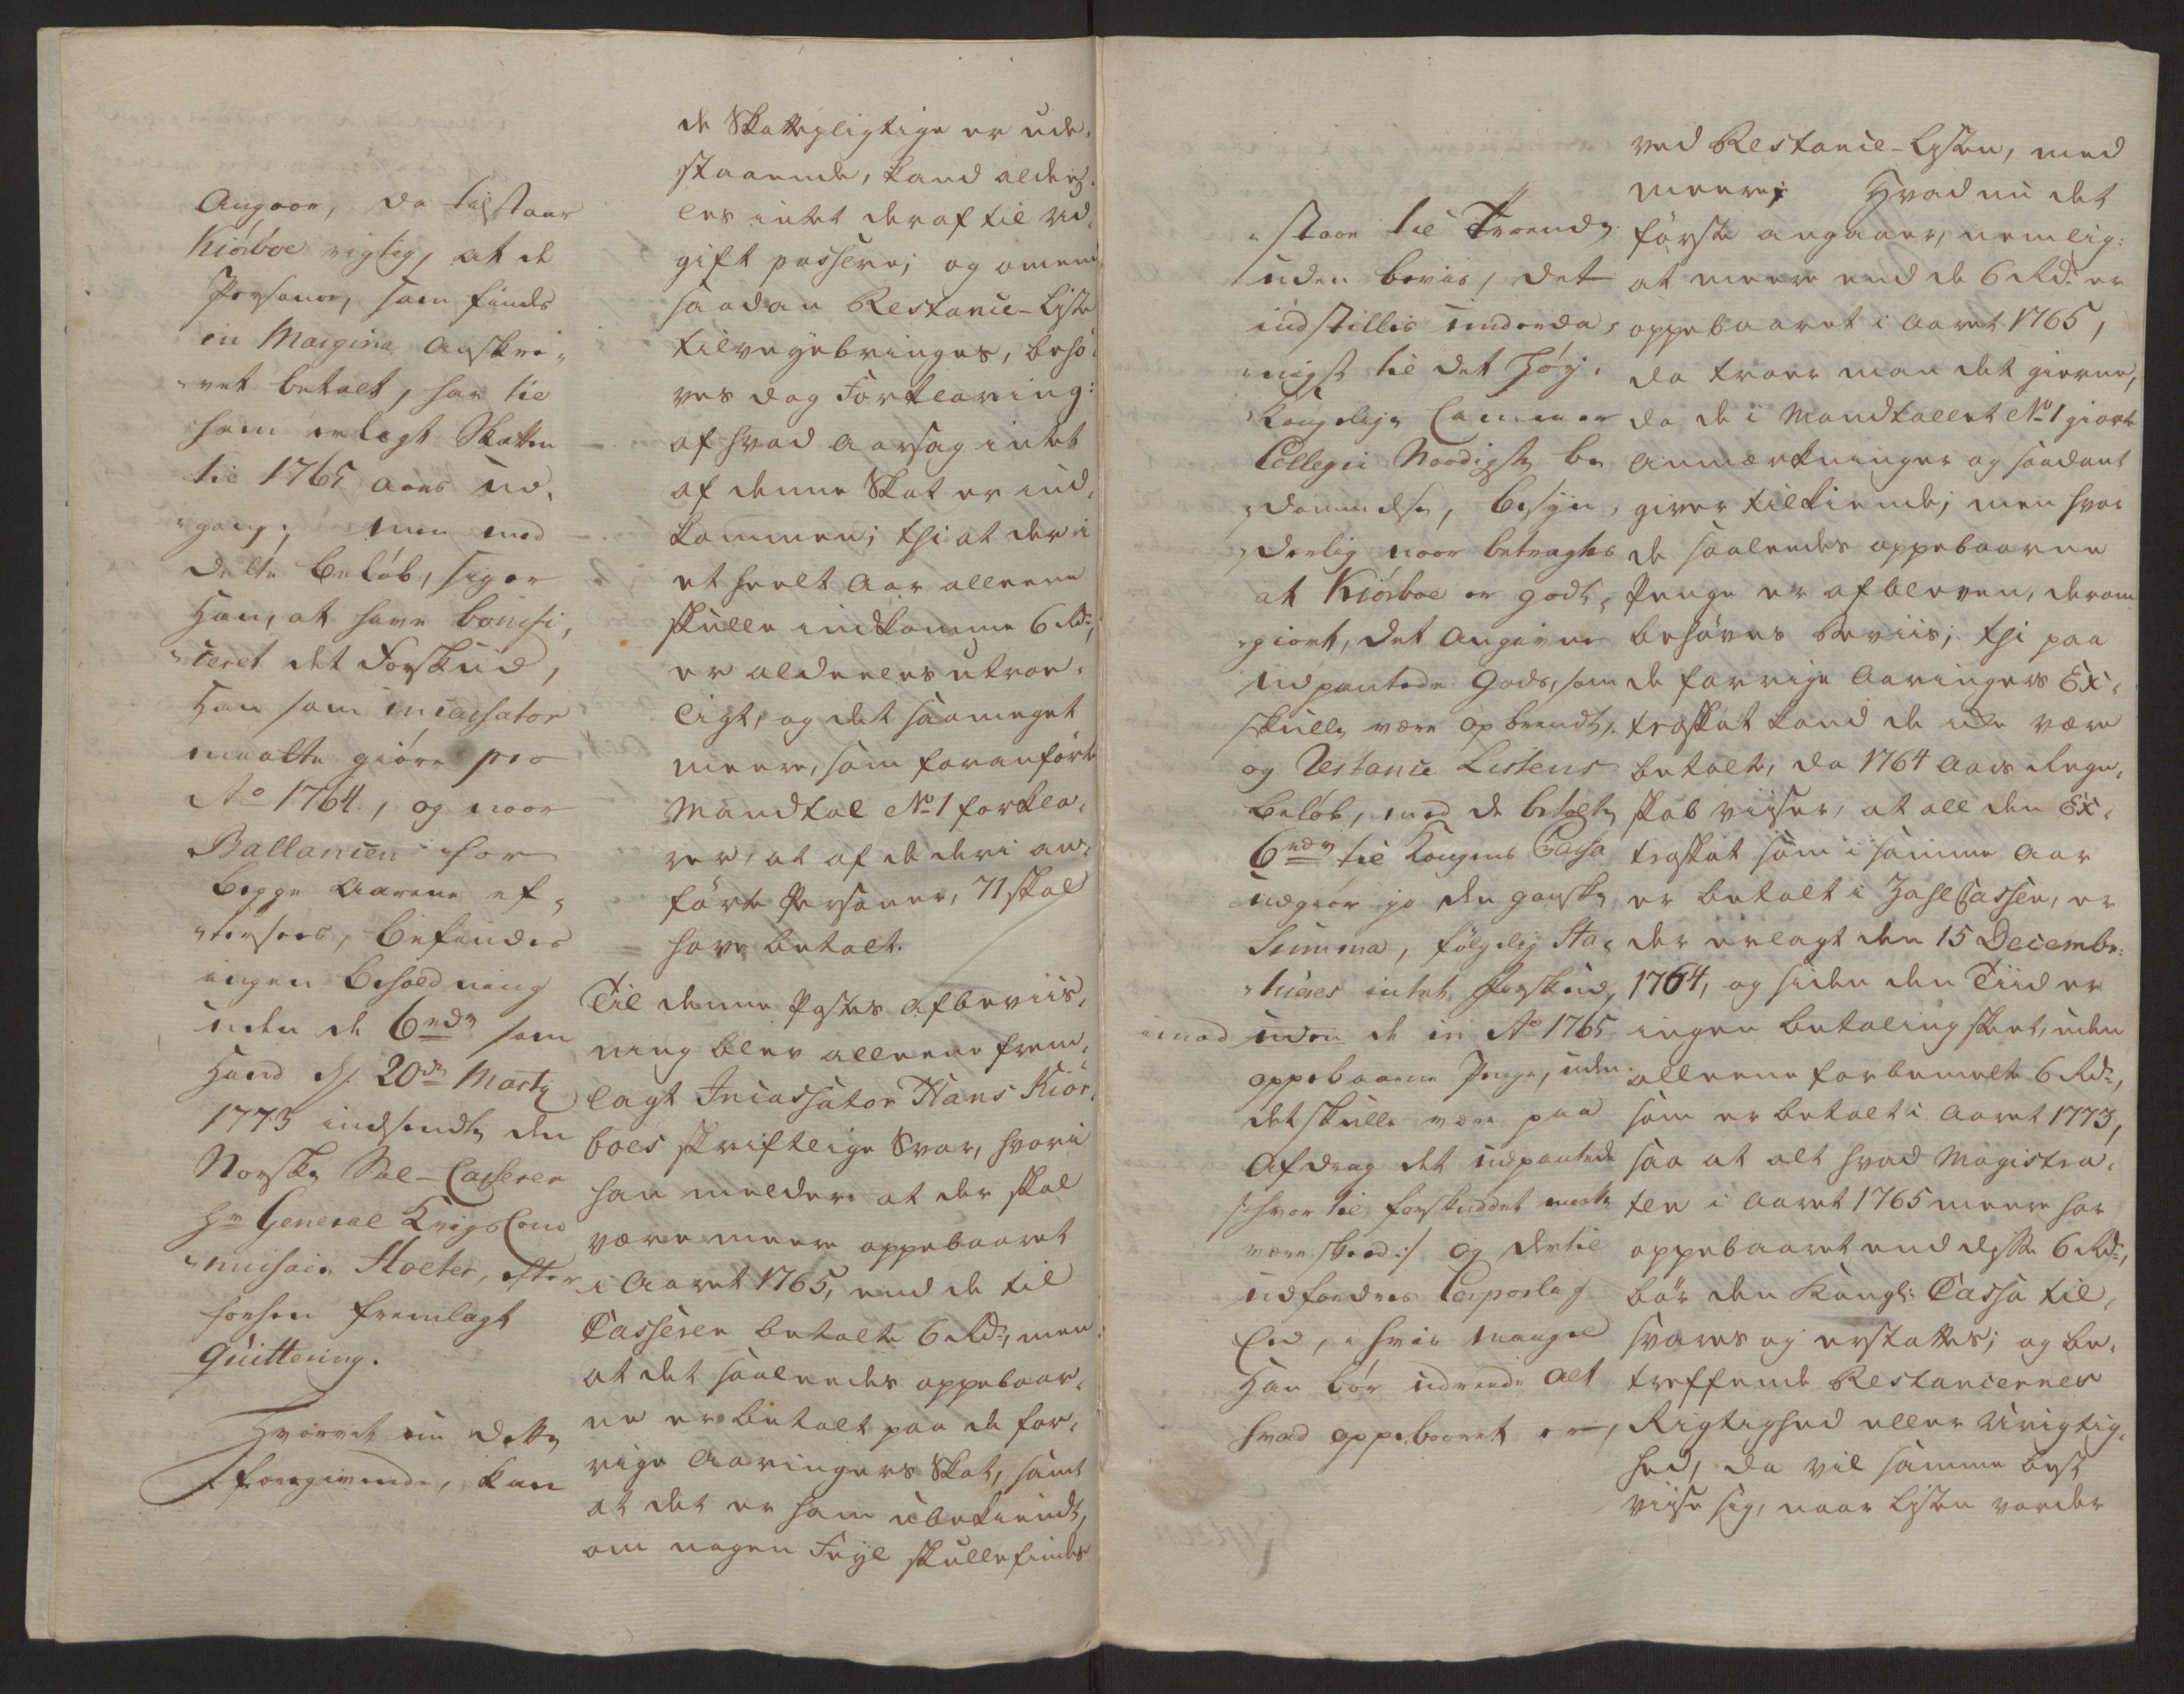 Angaar, da tilstaar
Kiörboe rigtig, at de
Personer, som findes
in Margina Anskre-
vet betalt, har til
ham erlagt Skatten
til 1765 aars ud-
gang; men med
dette Beløb, siger
Han, at have bonifi-
ceret det Forskud,
Han som incassator
maatte giøre pro
Ao 1764, og naar
Ballancen for
begge Aarene ef-
tersees, befindes
ingen beholdning
uden de 6 rdr som
Hand d. 20de Marty
1773 indsendte den
Norske Zal-Casserer
Hr General Krigs Com
missair Holter, efter
herhen fremlagt
Quittering.
Hvorvit nu dette
foregivende, kan
de Skattepligtige er ude-
staaende, kand alde-
les intet deraf til Ud-
gift passere; og omend
saadan Restance-Liste
tilvejebringes, behø-
ves dog Forklaring:
af hvad aarsag intet
af denne Skat er ind-
kommen; thi at der i
et heelt Aar alleene
skulle indkomme 6 Rdr,
er aldeeles utroe-
ligt, og det saameget
meere, som foranførte
Mandtal No 1 forkla-
rer, at af de deri an-
førte Personer, 71 skal
have betalt.
Til denne Posts Afbeviis-
ning blev alleene frem-
lagt Incassator Hans Kiör-
boes skriftlige Svar, hvori
han melder at der skal
være meere oppebaaret
i Aaret 1765, end de til
Casseren betalte 6 Rdr, men
at det saaleedes oppebaar-
ne er betalt paa de for-
rige Aaringers Skat, samt
at det er ham ubekiendt,
om nogen Feyl skulle findes
staae til Troende
uden beviis, det
indstilles underda-
nigst til det høy-
Kongelige Cammer
Collegii Naadigste be-
dømmelse, besyn-
derlig naar betragtes
at Kiörboe er godt-
giort, det Angivne
udpantede Gods, som
skulle være opbrendt,
og Restance Listens
beløb, med de betalte
6 rdr til Kongens Cassa
udgiør jo den ganske
Summa, følgelig Sta-
tueres intet forskud,
imod uden de in Ao 1765
oppebaarne Penge, uden
det skulle være paa
Afdrag det udpantede
/: hvor til forskuddet maatte
være skeed :/ og dertil
udfordres Corporlig
Eed, i hvis mangel
Han bør udreede alt
hvad oppebaaret er,
ved Restance-Listen, med
meere; Hvad nu det
første angaaer, nemlig:
at meere end de 6 Rdr er
oppebaaret i Aaret 1765,
da troer man det gierne,
da de i Mandtallet No 1 giorte
Anmærkninger og saadant
giver tilkiende; men hvor
de saaleedes oppebaarne
Penge er afbleven, derom
behøves Beviis; thi paa
de forrige Aaringers Ex-
traskat kand de ikke være
betalte, da 1764 Aars Regn-
skab viiser, at all den Ex-
traskat som i samme Aar
er betalt i Zahl Cassen, er
der erlagt den 15 Decembr:
1764, og siden den Tiid er
ingen betaling skeet, uden
alleene forbemelte 6 Rdr,
som er betalt i Aaret 1773,
saa at alt hvad Magistra-
ten i Aaret 1765 meere har
oppebaaret end disse 6 Rdr,
bør den Kongl: Cassa til-
svares og erstattes; og be-
treffende Restancernes
Rigtighed eller Urigtig-
hed, da vil samme best
viise sig, naar Listen vorder